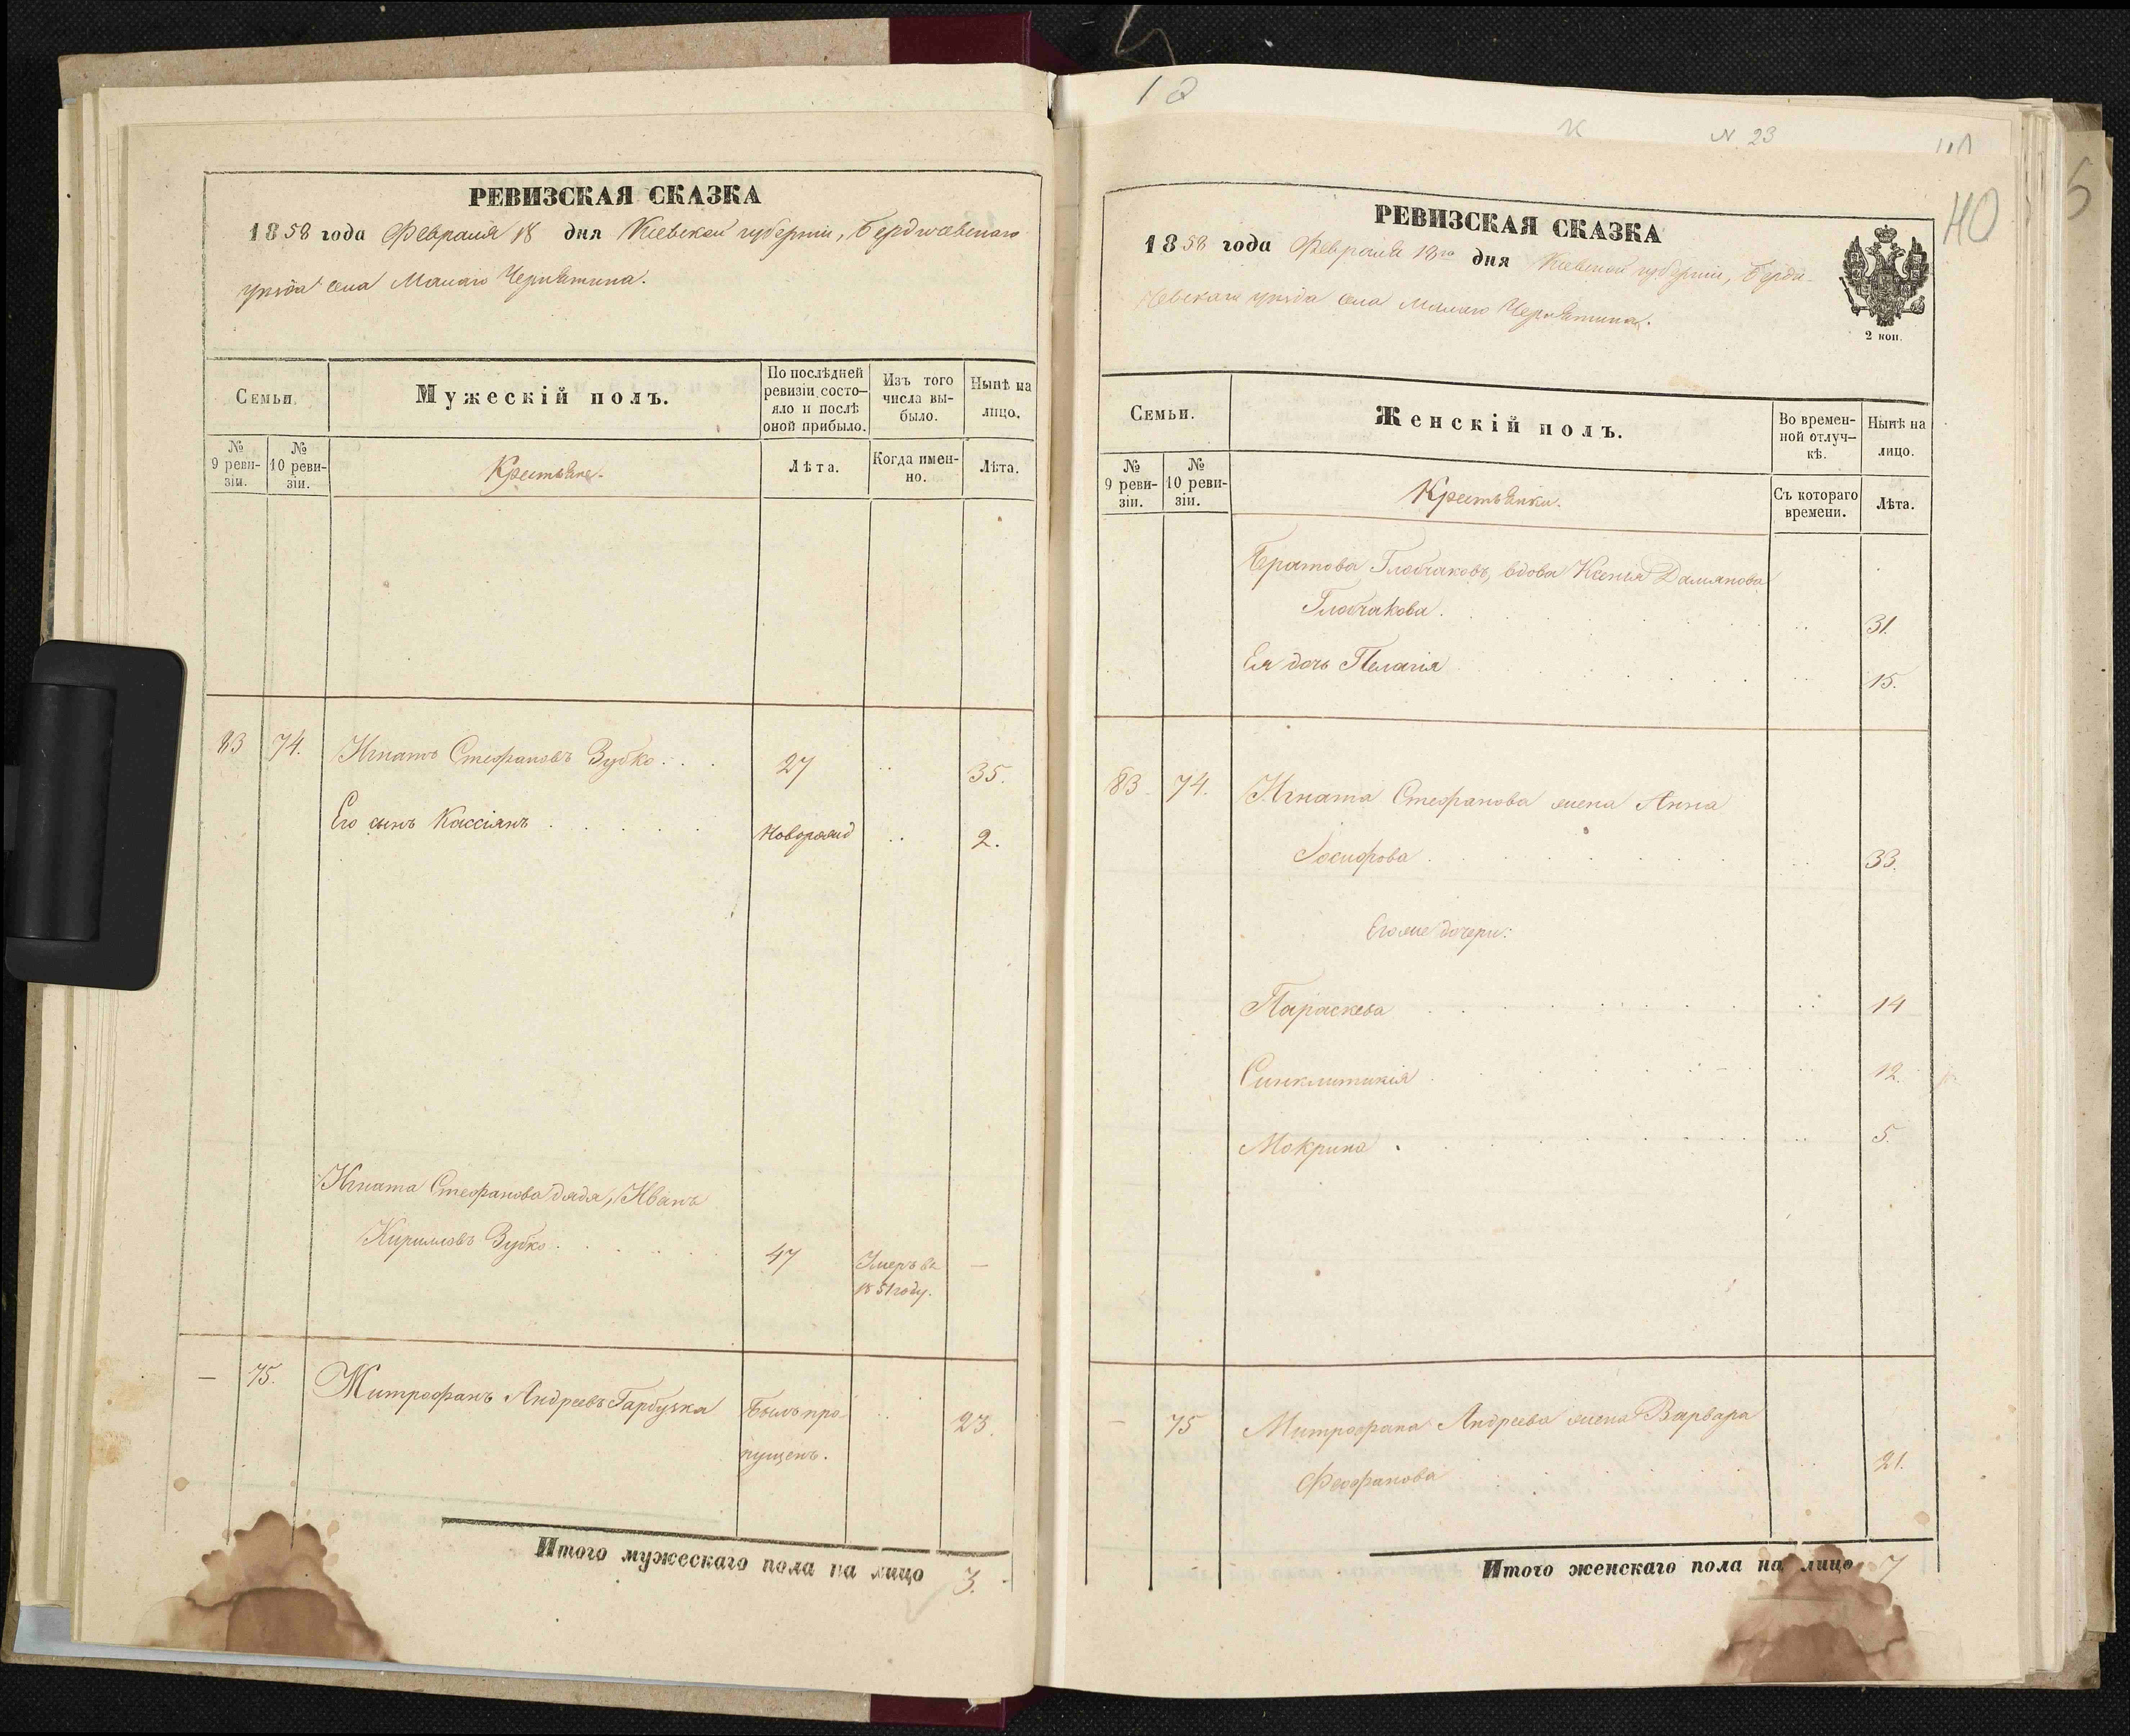 РЕВИЗСКАЯ СКАЗКА
1858 года Февраля 18 дня Кіевской губерніи, Бердичевскаго
уѣзда села Малаго Чернятина.
Семьи.
Мужескій полъ.
По послѣдней
ревизіи состо-
яло и послѣ
оной прибыло.
Изъ того
числа вы-
было.
Нынѣ на
лицо.
№
9 реви-
зіи.
№
10 реви-
зіи.
Крестьяне.
Лѣта.
Когда имен-
но.
Лѣта.
83 74. Игнатъ Стефановъ Зубко . . . 27 .. 35.
Его сынъ Кассіянъ . . . . . Новорожд .. 2.
Игната Стефанова дядя, Иванъ
Кириловъ Зубко . . . . . 47 Умеръ въ —
1851 году.
— 75. Митрофанъ Андреевъ Гарбузка Былъ про- .. 23.
пущенъ.
Итого мужескаго пола на лицо 3.
12
N. 23
40
5
РЕВИЗСКАЯ СКАЗКА
1858 года Февраля 18го дня Кіевской губерніи, Берди-
чевскаго уѣзда села Малаго Чернятина.
2 коп.
Семьи.
Женскій полъ.
Во времен-
ной отлуч-
кѣ.
Нынѣ на
лицо.
№
9 реви-
зіи.
№
10 реви-
зіи.
Крестьянки.
Съ котораго
времени.
Лѣта.
вдова Ксенія Даміянова
.. 31.
Ея дочь Пелагія .. 15.
83. 74. Игната Стефанова жена Анна
Іосифова . . . . . .. 33.
Его же дочери:
Параскева . . . . . .. 14
Синклитикія . . . . . .. 12.
Мокрина . . . . . .. 5.
— 75 Митрофана Андреева жена Варвара
Феофанова . . . . .. 21.
Итого женскаго пола на лицо 7